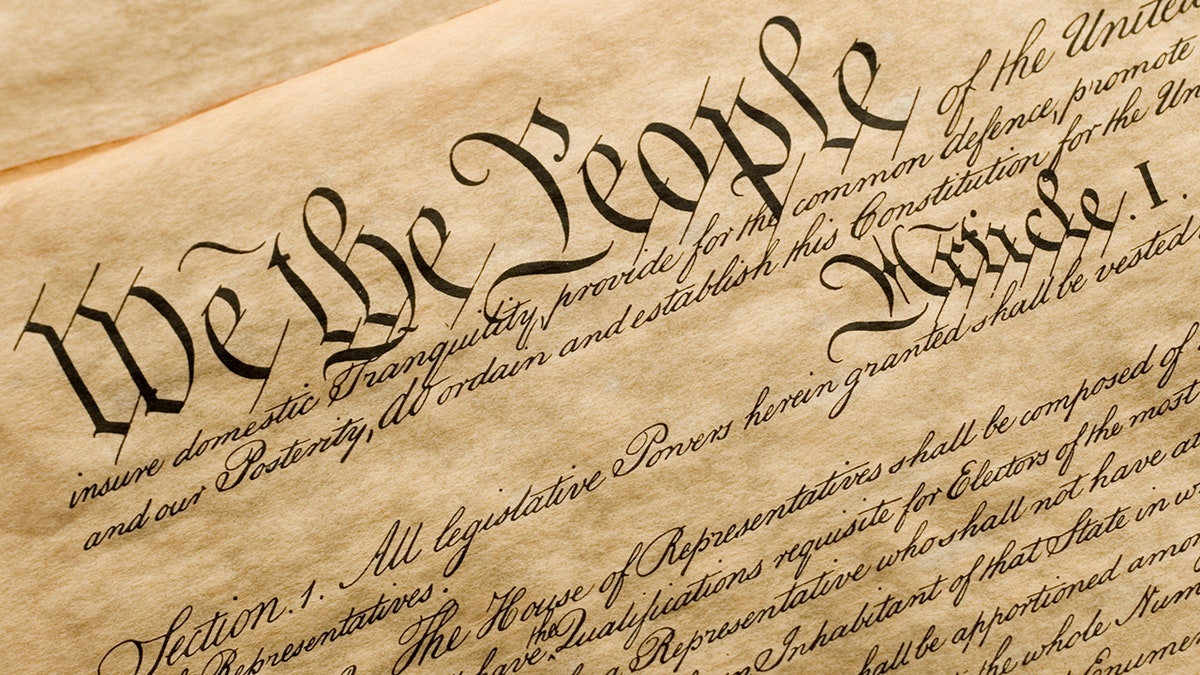 We the People of the United
insure domestic Tranquility, provide for the common defence, promote
and our Posterity, do ordain and establish this Constitution for the Un
Article. I.
Section. 1. All legislative Powers herein granted shall be vested
Representatives.
The House of Representatives shall be composed of
have the Qualifications requisite for Electors of the most
a Representative who shall not have a
Inhabitant of that State in w
hall be apportioned amon
the whole Num
Enumer